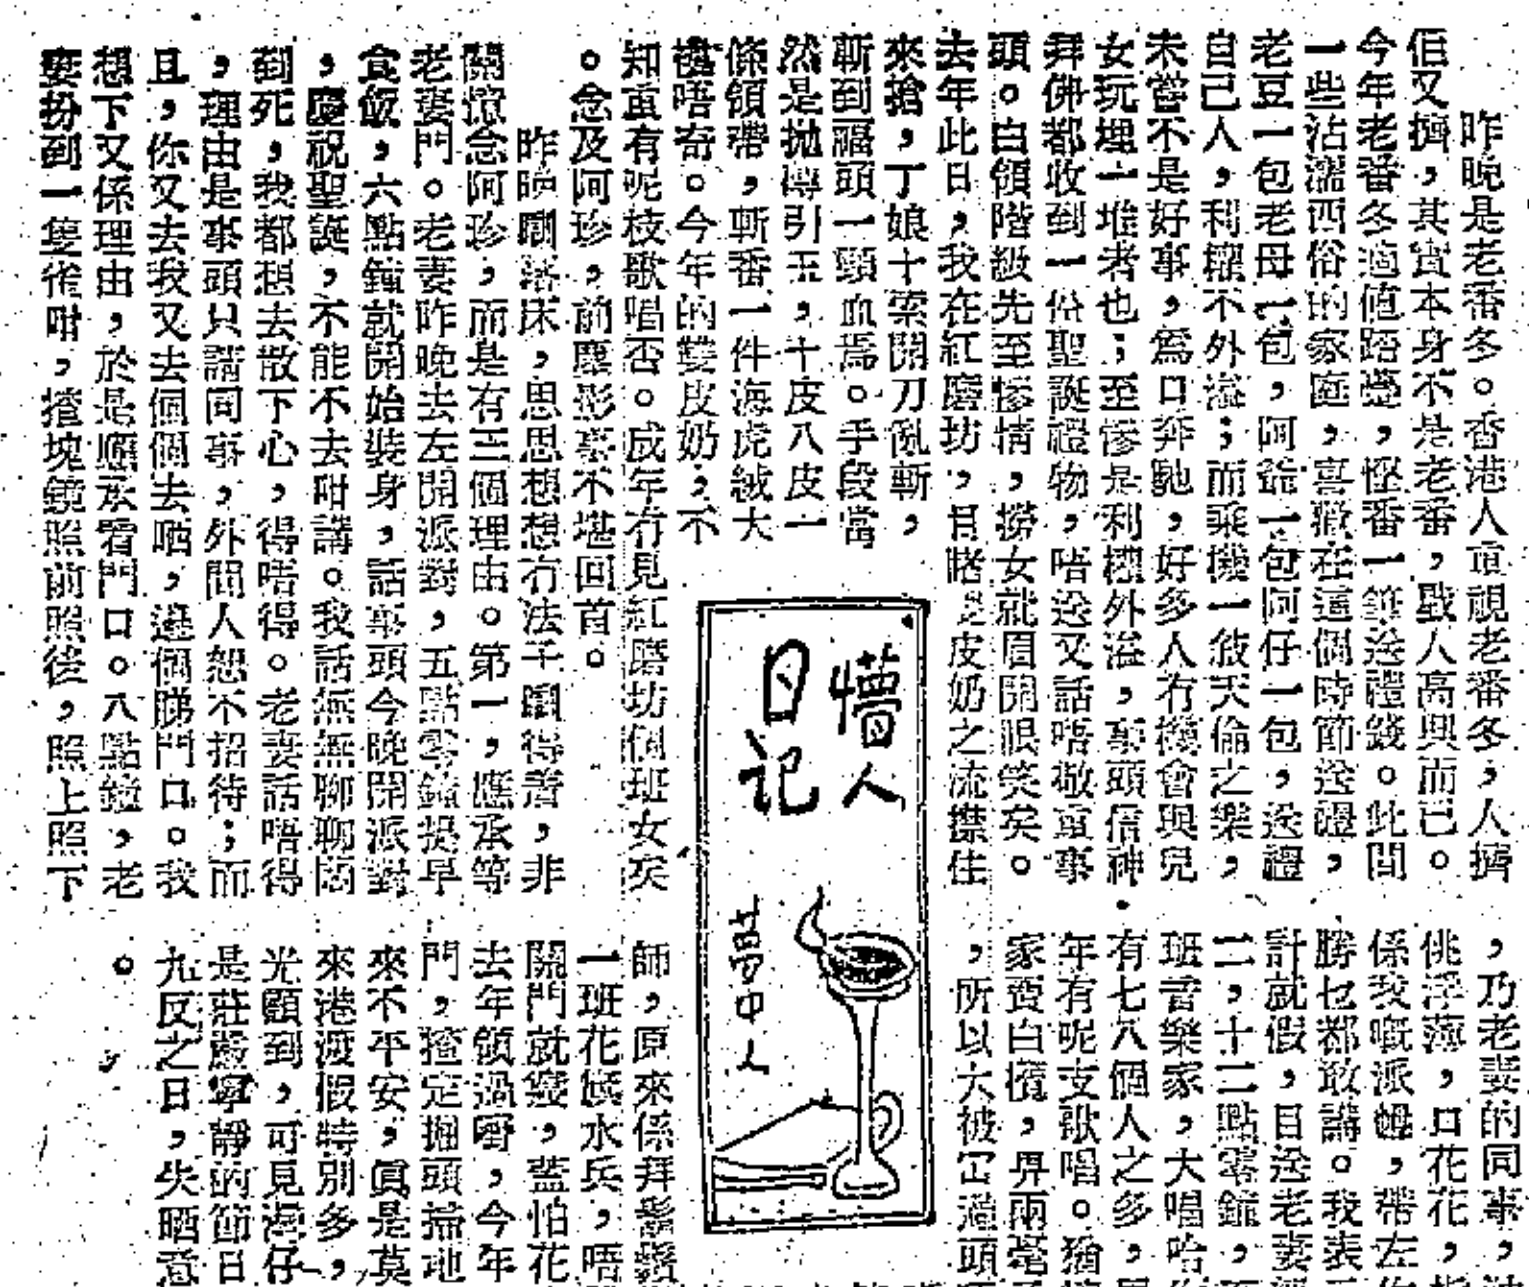 昨晚是老番冬。香港人重視老番冬，人擠
佢又擠，其實本身不是老番，戥人高興而已。
今年老番冬適值踎墩，慳番一筆送禮錢。此間
一些沾濡西俗的家庭，喜歡在這個時節送禮，
老豆一包老母一包，阿爺一包阿仔一包，送禮
自己人，利權不外溢；而乘機一敘天倫之樂，
未嘗不是好事，爲口奔馳，好多人冇機會與兒
女玩埋一堆者也；至慘是利權外溢，事頭信神
拜佛都收到一份聖誕禮物，唔送又話唔敬重事
頭。白領階級先至慘情，撈女就眉開眼笑矣。
去年此日，我在紅磨坊，目睹 皮奶之流揸住
來搶，丁娘十索開刀亂斬，
斬到福頭一頸血焉。手段當
然是拋磚引玉，十皮八皮一
條領帶，斬番一件海虎絨大
褸唔奇。今年的 皮奶，不
知重有呢枝歌唱否。成年冇見紅磨坊個班女矣
。念及阿珍，前塵影事不堪回首。
昨晚瞓落床，思思想想冇法子瞓得着，非
關憶念阿珍，而是有三個理由。第一，應承等
老妻門。老妻昨晚去左開派對，五點零鐘提早
食飯，六點鐘就開始裝身，話事頭今晚開派對
，慶祝聖誕，不能不去咁講。我話無無聊聊悶
到死，我都想去散下心，得唔得。老妻話唔得
，理由是事頭只請同事，外間人恕不招待；而
且，你又去我又去個個去晒，邊個睇門口。我
想下又係理由，於是應承看門口。八點鐘，老
妻扮到一隻雀咁，揸塊鏡照前照後，照上照下
懵人
日记
中人
，乃老妻的同事，
佻浮薄，口花花，
係我嘅派
勝乜都敢講。我表
計就假，目送老妻
二，十二點零鐘，
班音樂家，大唱哈
有七八個人之多，
年有呢支歌唱。猶
家賣白欖，畀兩毫
，所以大被冚過頭
師，原來係拜
一班花旗水兵，唔
關門就發，藍怕花
去年領過嘢，今年
門，揸定掘頭掃地
來不平安，眞是莫
來港渡假特別多，
光顧到，可見灣仔
是莊嚴寧靜的節日
九反之日，失晒意
。